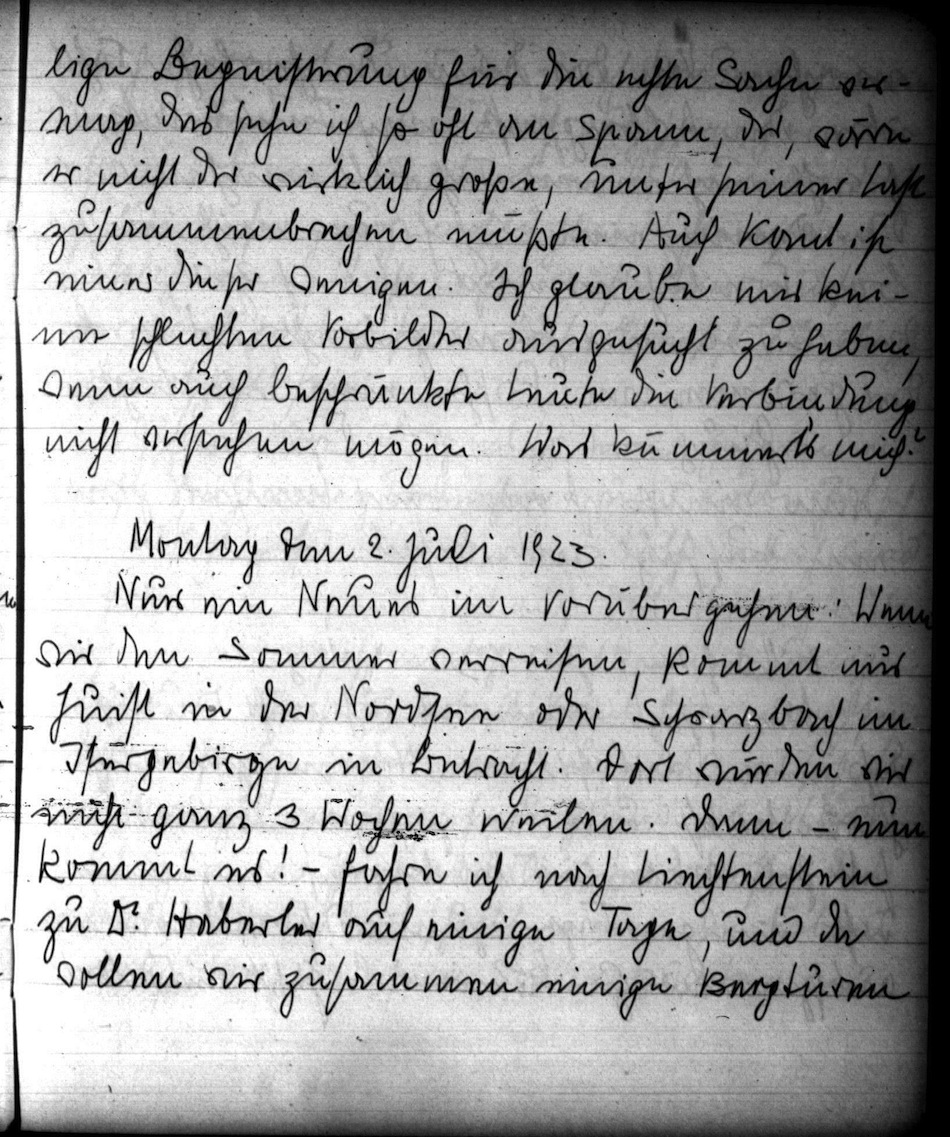 lige Begeisterung für die echte Sache ver-
mag, das sehe ich so oft an Spann, der, wäre
er nicht der wirklich große, unter seiner Last
zusammenbrechen müßte. Auch Kant ist
einer dieser wenigen. Ich glaube mir kei-
ne schlechten Vorbilder ausgesucht zu haben,
wenn auch beschränkte Leute die Verbindung
nicht verstehen mögen. Was kümmert's mich?
Montag den 2. Juli 1923.
Nur ein Neues im Vorübergehen: Wenn
wir den Sommer verreisen, kommt nur
Juist in der Nordsee oder Schwarzbach im
Isergebirge in Betracht. Dort würden wir
nicht ganz 3 Wochen weilen. Denn – nun
kommt es! – fahre ich nach Liechtenstein
zu Dr. Haberler auf einige Tage, und da
wollen wir zusammen einige Bergturen